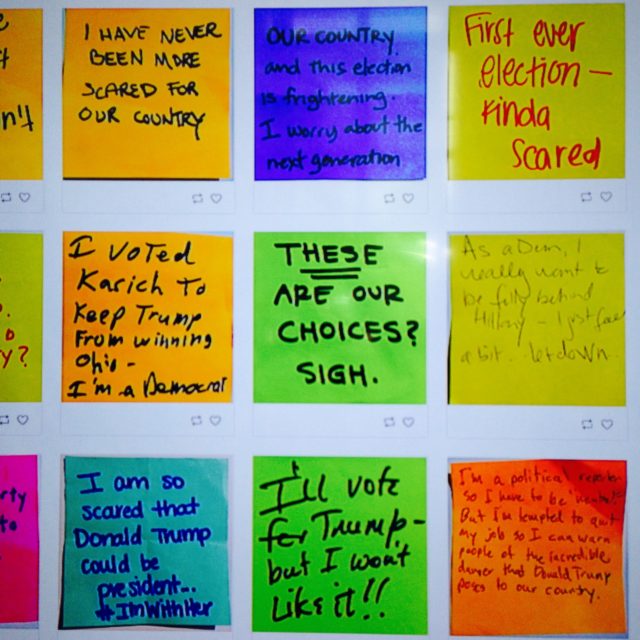 n't
I HAVE NEVER
BEEN MORE
SCARED FOR
OUR COUNTRY
OUR COUNTRY
and this election
is frightening.
I worry about the
next generation
First ever
election –
Kinda
Scared
y?
I VOTED
Karich To
Keep Trump
From winning
Ohio -
I'm a Democrat
THESE
ARE OUR
CHOICES?
SIGH.
As a Dem, I
really want to
be fully behind
Hillary - I just feel
a bit.. let down.
rty
to
I am so
scared that
Donald Trump
could be
president...
#ImWithHer
I'll vote
for Trump -
but I won't
Like it!!
I'm a political reporter
so I have to be 'neutral'
But I'm tempted to quit
my job so I can warn
people of the incredible
danger that Donald Trump
poses to our country.